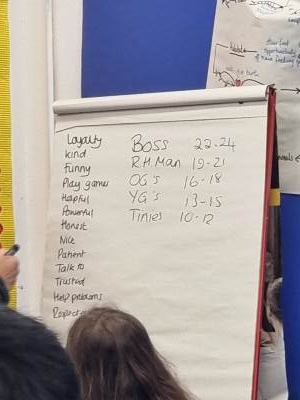 Loyalty
kind
funny
Play games
Helpful
Powerful
Honest
Nice
Patient
Talk to
Trusted
Help problems
BOSS 22-24
R.H Man 19-21
OG's 16-18
YG's 13-15
Tinies 10-12